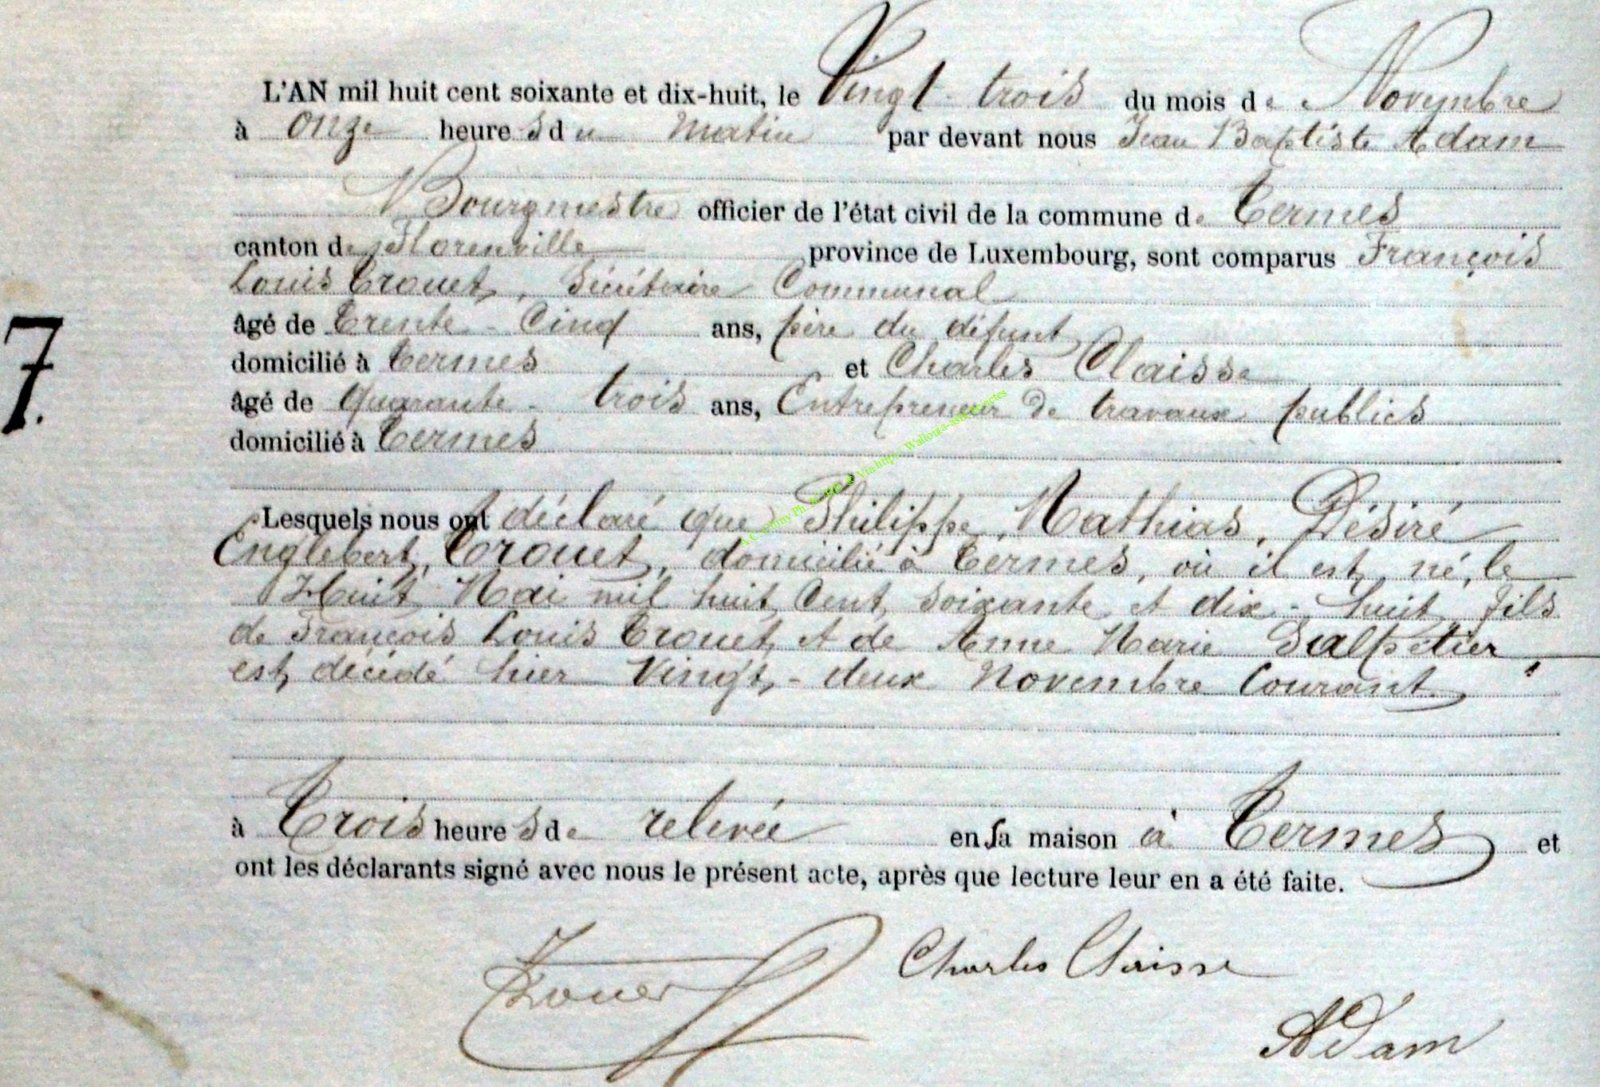 L'AN mil huit cent soixante et dix-huit, le Vingt-trois du mois de Novembre
à onze heures du matin par devant nous Jean Baptiste Adam
Bourgmestre officier de l'état civil de la commune de Termes
canton de Florenville province de Luxembourg, sont comparus François
Louis Trouet, Sécrétaire Communal
âgé de Trente-Cinq ans, père du défunt
domicilié à Termes et Charles Claisse
âgé de Quarante-trois ans, Entrepreneur de travaux publics
domicilié à Termes
7.
Lesquels nous ont déclaré que Philippe, Mathias, Désiré
Englebert, Trouet, domicilié à Termes, où il est né, le
Huit Mai mil huit Cent soixante et dix-huit, fils
de François Louis Trouet, et de Anne Marie Salpetier,
est décédé hier Vingt-deux Novembre Courant
à Trois heures de relevée en sa maison à Termes et
ont les déclarants signé avec nous le présent acte, après que lecture leur en a été faite.
Trouet Charles Claisse
Adam